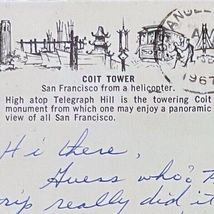 ANGEL
AM
1967
COIT TOWER
San Francisco from a helicopter.
High atop Telegraph Hill is the towering Coit
monument from which one may enjoy a panoramic
view of all San Francisco.
Hi there,
Guess who? T
rip really did it